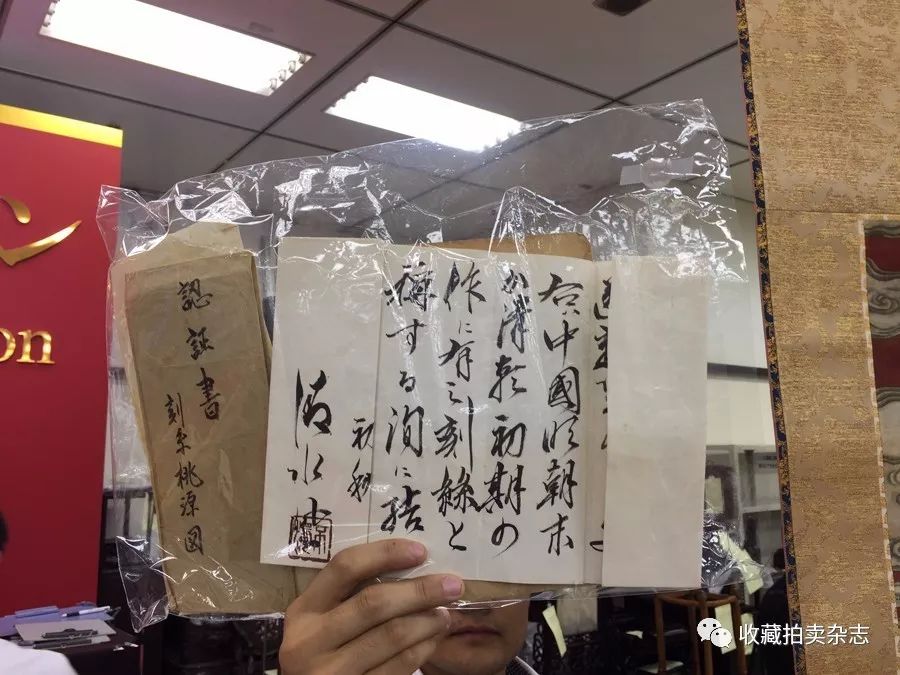 on
認証書
刻糸桃源図
右ハ中國明朝末
か清朝初期の
作に有之刻絲と
称する洵に結
初秋
清水
收藏拍卖杂志